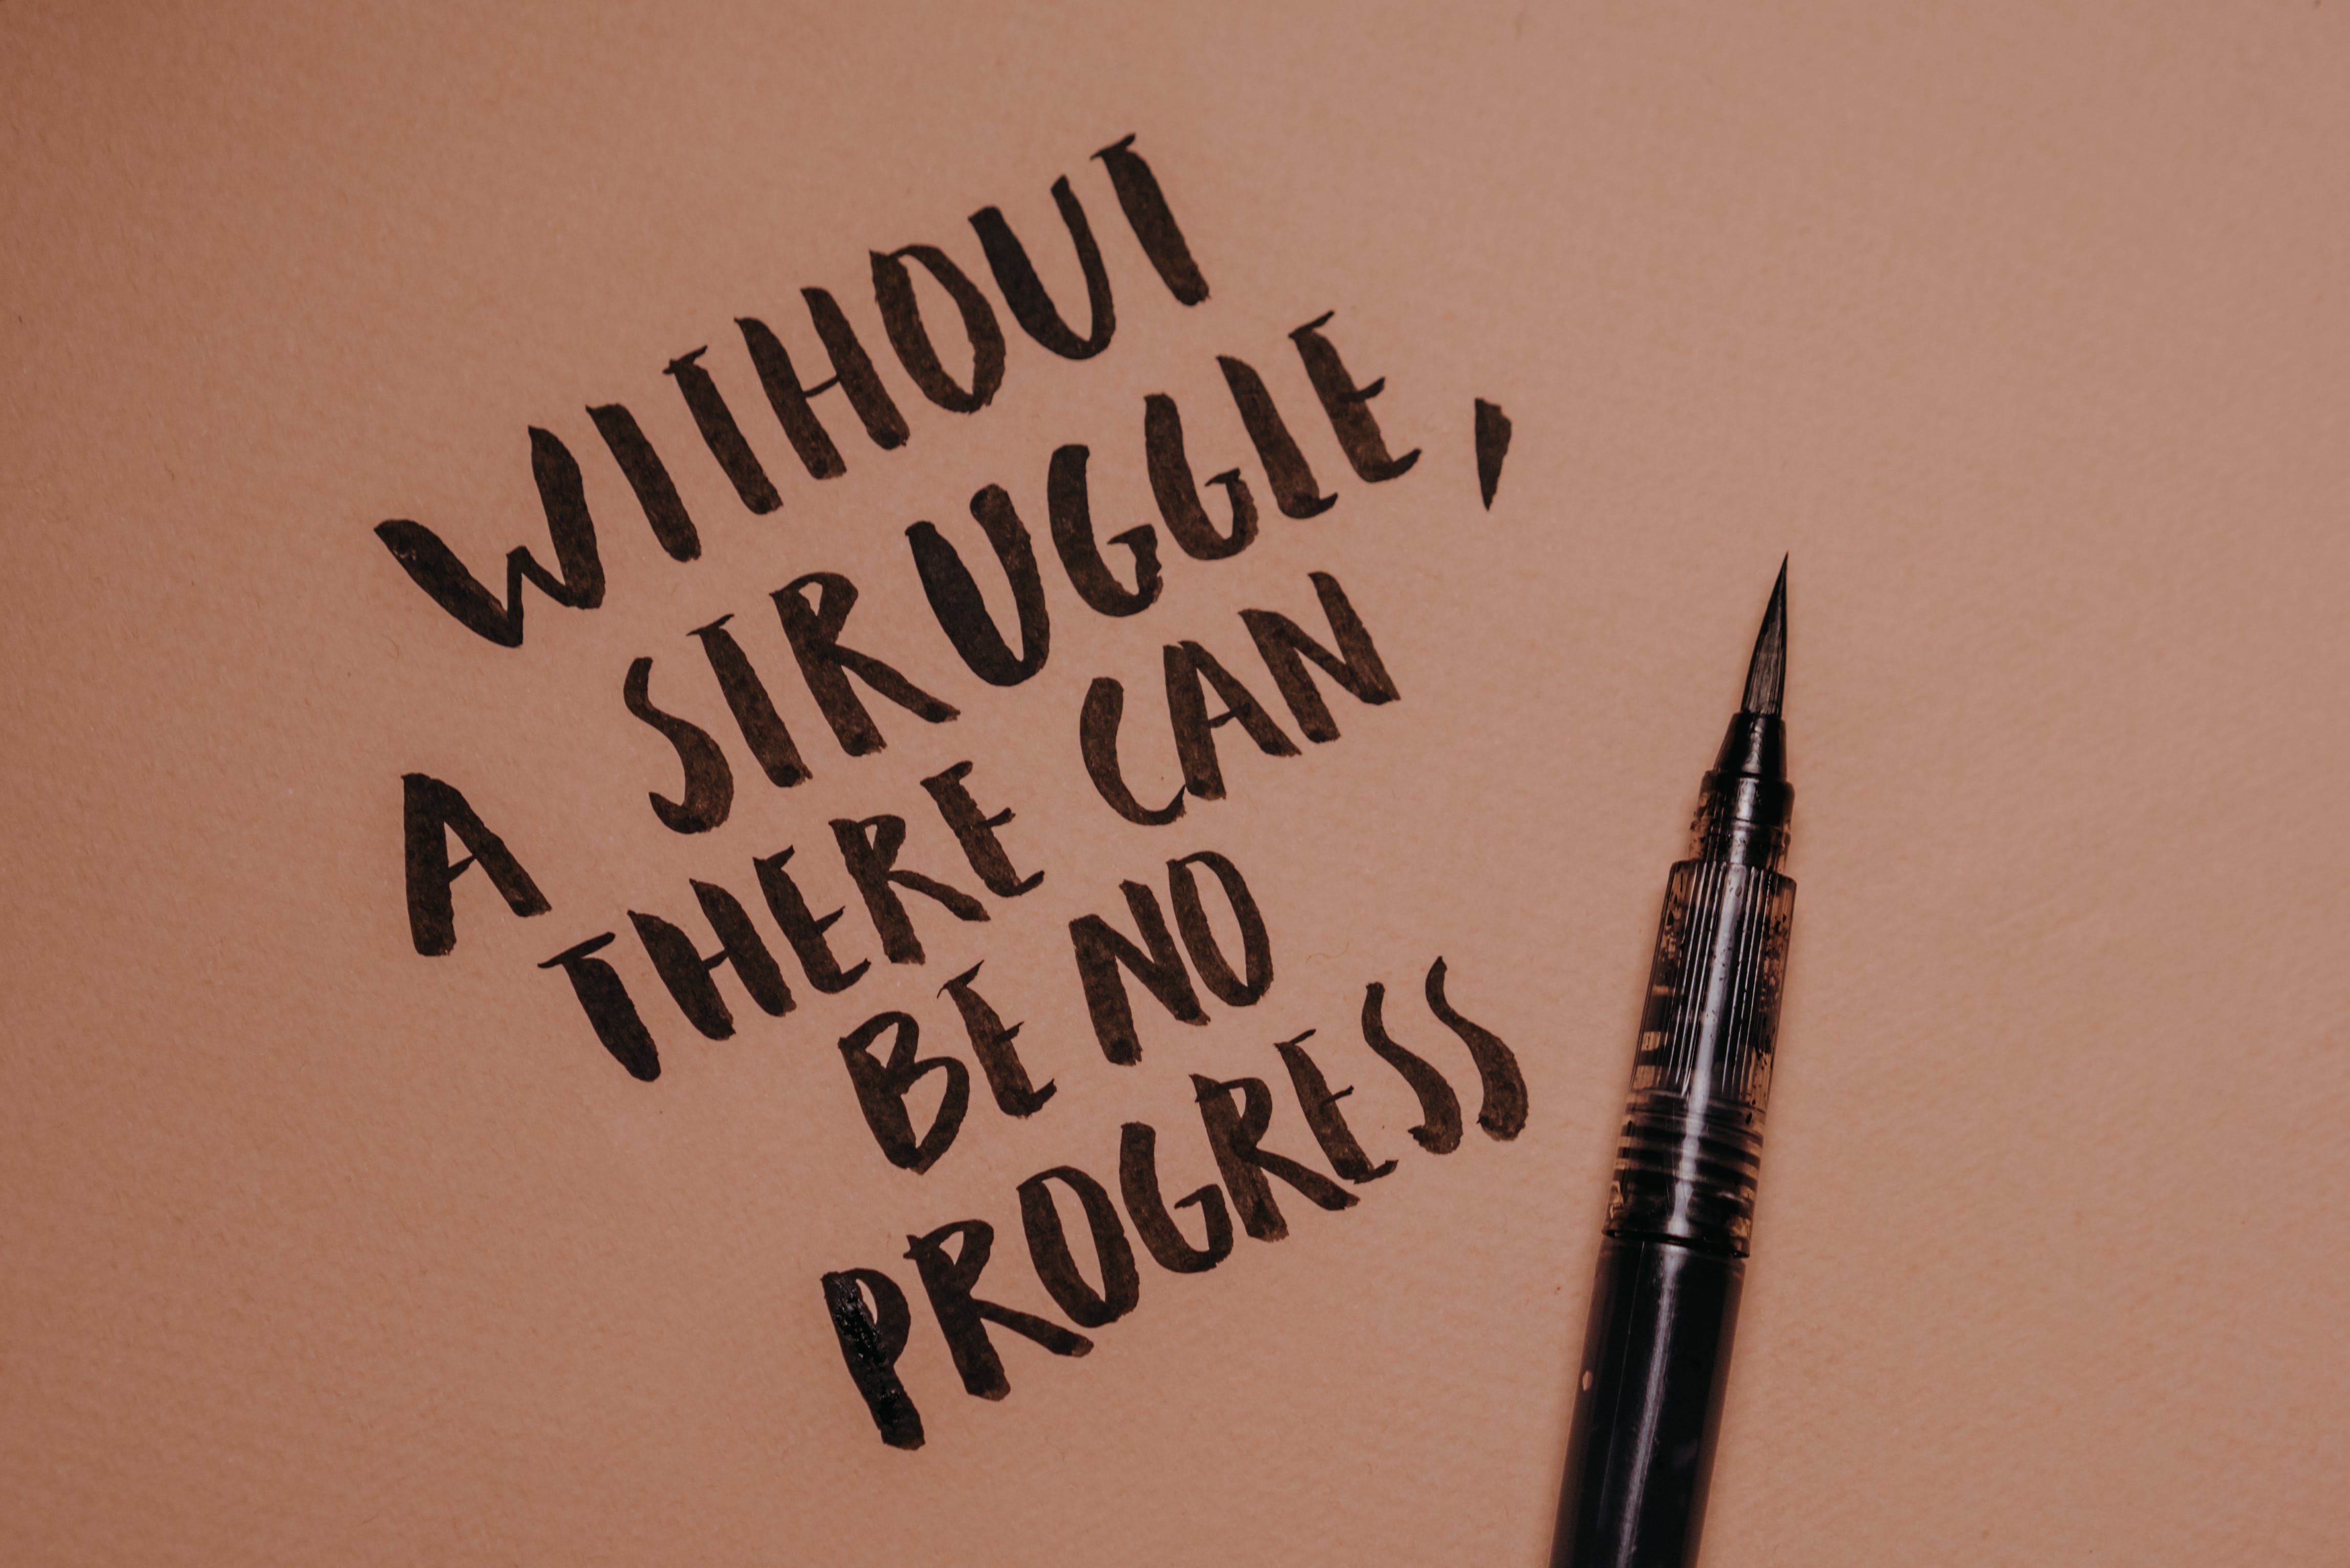 WITHOUT
A STRUGGLE,
THERE CAN
BE NO
PROGRESS